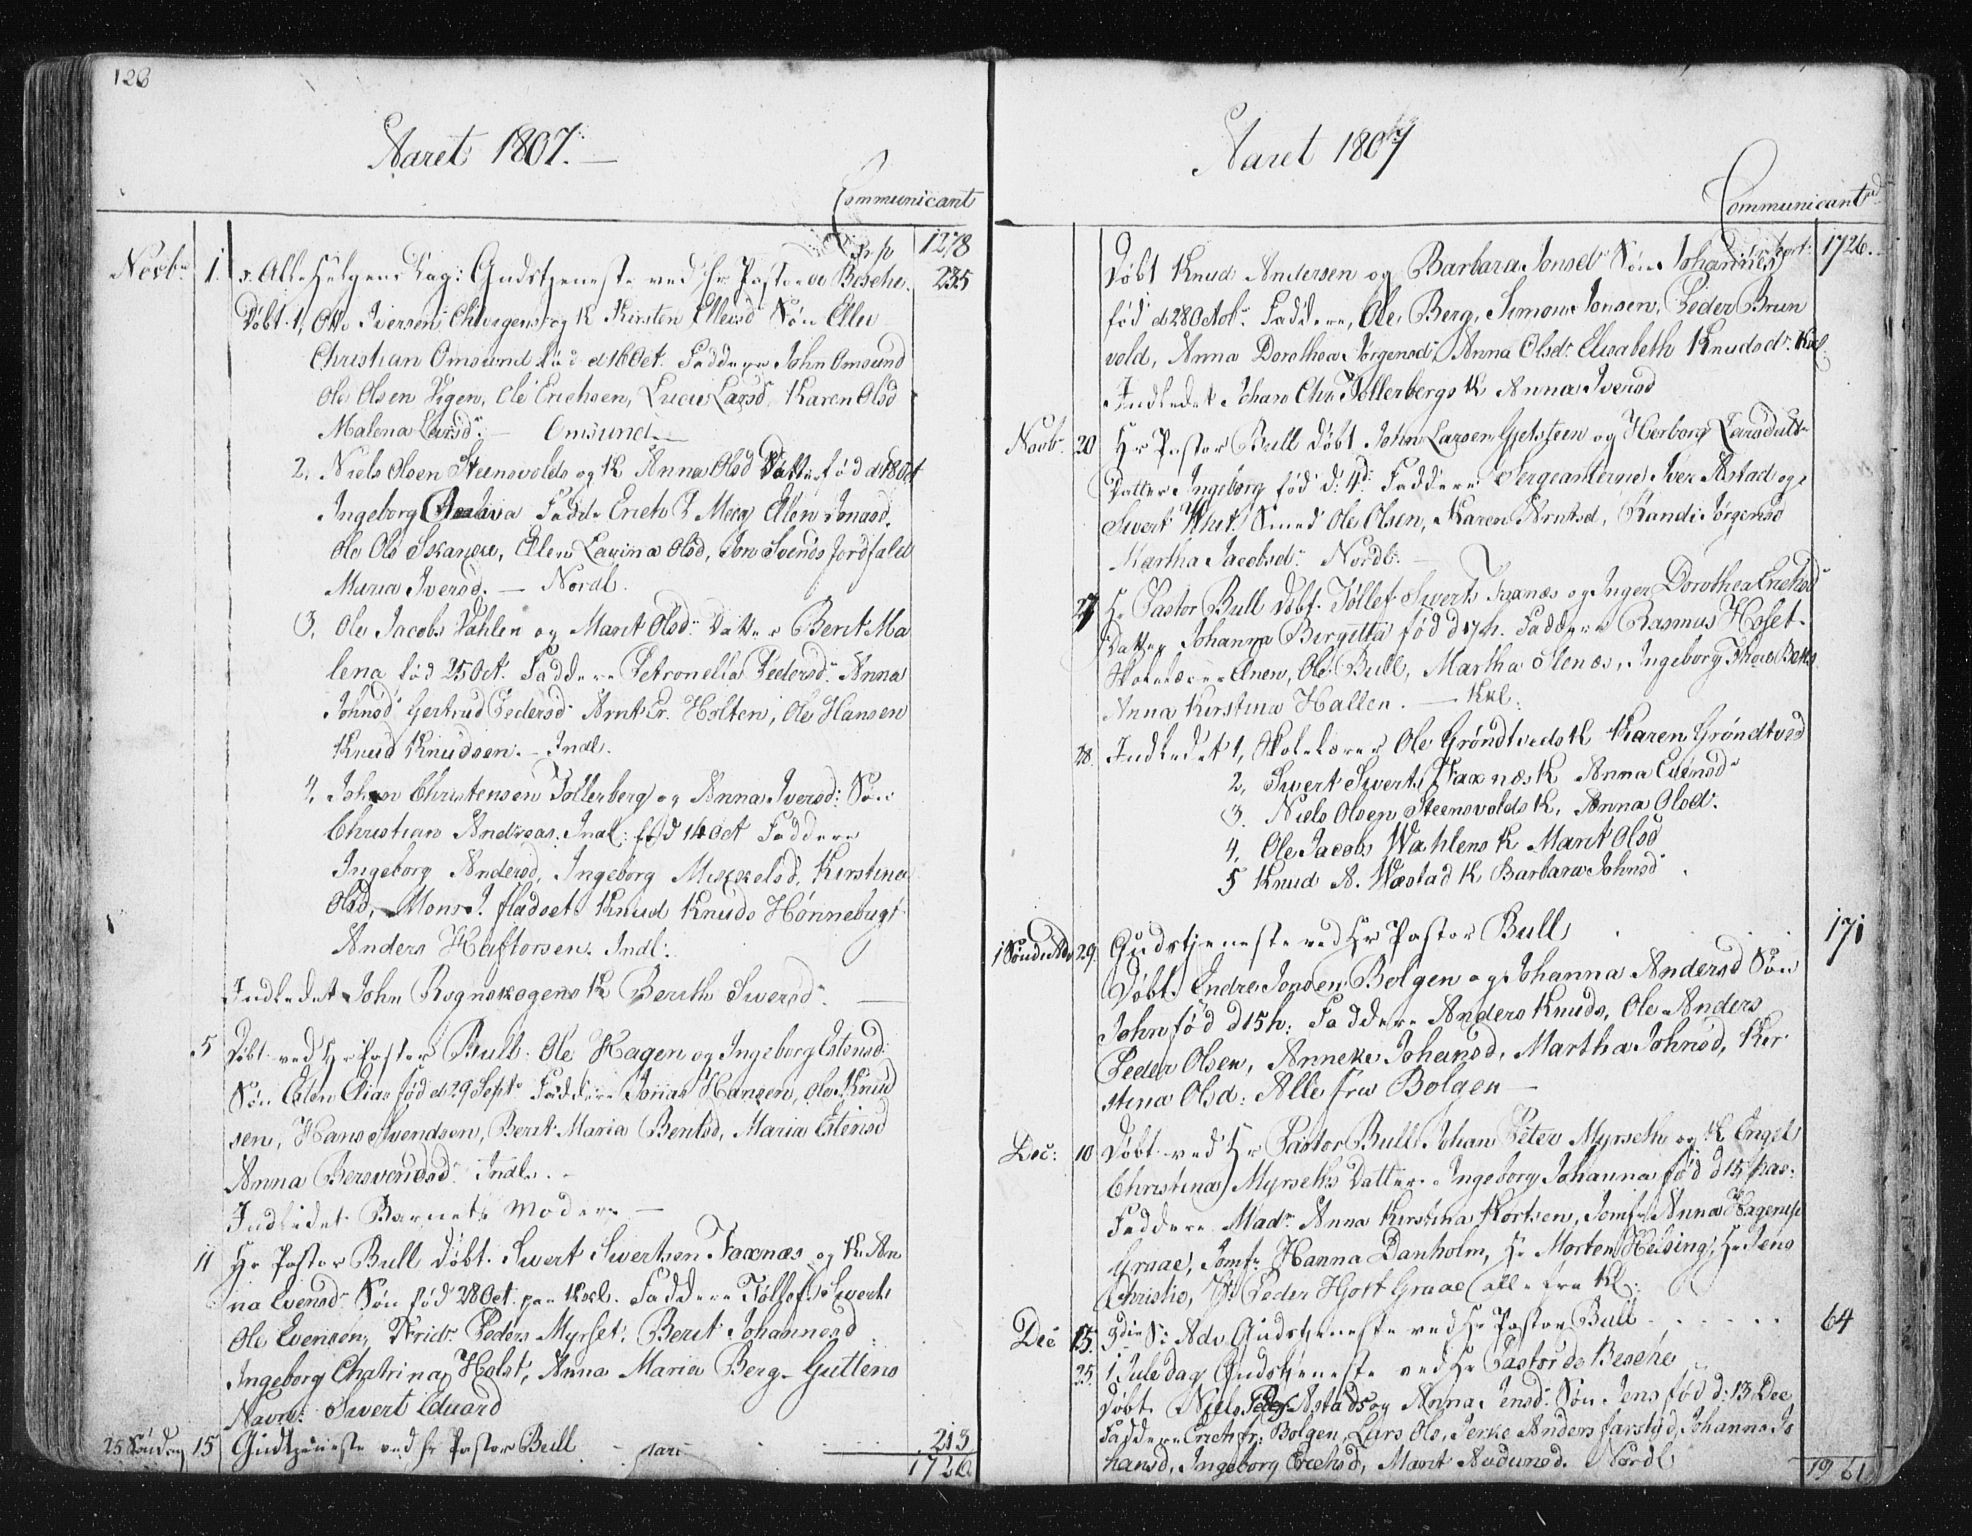 126
Aaret 1807.
Communicant
Trp 1278
Novbr 1. s. Alle Helgens Dag: Gudstjeneste ved Hr Pastor de Besche. 235
Døbt 1, Otto Iversens og K Kirsten Ellevsd Søn Ellev
Christian Omsund fød d 16 Oct. Faddere John Omsund
Ole Olsen Vigen, Ole Erichsen, Lucie Larsd. Karen Olsd
Malena Larsdr. — Omsund
2, Niels Olsen Steensvolds og K Anna Olsd Datter fød d 18 Oct
Ingeborg Fadde Erich I Moeg Ellen Jonasd.
Ole Ols Skanke, Ellen Lavina Olsd, Jon Svends Jordfald
Maria Iversd. — Nordl.
3, Ole Jacobs Vahlen og Marit Olsdr Datter Berit Ma
lena fød 25 Oct. Faddere Petronella Pedersdr Anna
Johnsd Gertrud Pedersdr Arnt Er. Holten, Ole Hansen
Knud Knudsen. — Indl.
4, Johan Christensen Tollerberg og Anna Iversd: Søn
Christian Andreas: Indl: fød 14 Oct Faddere
Ingeborg Andersd, Ingeborg Mikkelsd, Kirstina
Olsd, Mons J. fladset Knud Knuds Hønnebugt
Anders Haftorsen. Indl:
Indledet John Rognskogens K Berith Siversdr. —
5 Døbt ved Hr Pastor Bull: Ole Hagen og Ingeborg Estensd:
Søn Elias fød d 29 Septr Faddere Jonas Hansen, Ole Knud
sen, Hans Svendsen, Berit Maria Bentsd, Maria Estensd
Anna Bersvendsdr Indl. —
Indledet Barnets Moder —
11 Hr Pastor Bull Døbt. Sivert Sivertsen Faxnæs og K. An
na Evensdr Søn fød 28 Oct. paa Kxl. Faddere Tollef Siverts
Ole Evensen, Fridr. Peders Myrset, Berit Johannesd
Ingeborg Chatrina Holst, Anna Maria Berg. Guttens
Navn: Sivert Eduard
25 Søndag 15 Gudtjeneste ved Hr Pastor Bull — . 213
1726
Aaret 1807
Communicant
1726.
Døbt Knud Andersen og Barbara Jonsdr Søn Johannes
fød d 28 Octobr. Faddere, Ole Berg, Simon Jonsen, Peder Brun
vold, Anna Dorothea Jørgensdr Anna Olsdr Elisabeth Knudsdr. Kxl.
Indledet Johan Chr Tollerbergs K Anna Iversd
Novbr 20 Hr Pastor Bull Døbt John Larsen Gjetsteen og Herborg Larsdattr
Datter Ingeborg fød d: 4d. Faddere Sergeanterne Iver Astad og
Sivert Smed Ole Olsen, Karen Arntsd, Randi Jørgensd
Martha Jacobsdr Nordl. —
27 Hr Pastor Bull Døbt. Tollef Siverts Faxnæs og Inger Dorothea Erichsd
Datter Johanna Birgitta fød d 17 h. Faddere Rasmus Hoset.
Skolelærer Einen, Ole Bull, Martha Stenæs, Ingeborg
Anna Kirstina Hallen. — Kxl.
28. Indledet 1, Skolelærer Ole Grøndtveds K Karen Grøndtved
2, Sivert Siverts Faxnæs K Anna Evensdr
3. Niels Olsen Steensvolds K. Anna Olsdr.
4, Ole Jacobs Wahlens K Marit Olsd
5 Knud A. Wæstad K Barbara Johnsd
1 Sønd: Adv 29. Gudstjeneste ved Hr Pastor Bull . . . 171
Døbt. Endre Jonsen Bolgen og Johanna Andersd Søn
John fød d 15 h: Faddere Anders Knuds, Ole Anders
Peder Olsen, Anneke Johansd, Martha Johnsd, Kir
stina Olsd: Alle fra Bolgen —
Dec: 10 Døbt ved Hr Pastor Bull Johan Peter Myrseth og K Engel
Christina Myrseths Datter Ingeborg Johanna fød d 15 pas:
Faddere Madm Anna Kirstina Kortsen, Jomfr Anna Hagerup
Graae, Jomfr Hanna Danholm, Hr Morten Heising, Hr Jens
Christie, Hr Peder Hjort Graae (alle fra Kl.
Dec 13. 3die S: Adv Gudstjeneste ved Hr Pastor Bull . . . . . . 64
25. 1 Juledag Gudstjeneste ved Hr Pastor de Besche
Døbt. Niels Peders Astads og Anna Jensdr Søn Jens fød d: 13 Dec
Faddere Erich Fr: Bolgen, Lars Ols, Anders farstad, Johanna Jo
hansd, Ingeborg Erichsd, Marit Audunsd. Nordl
1961